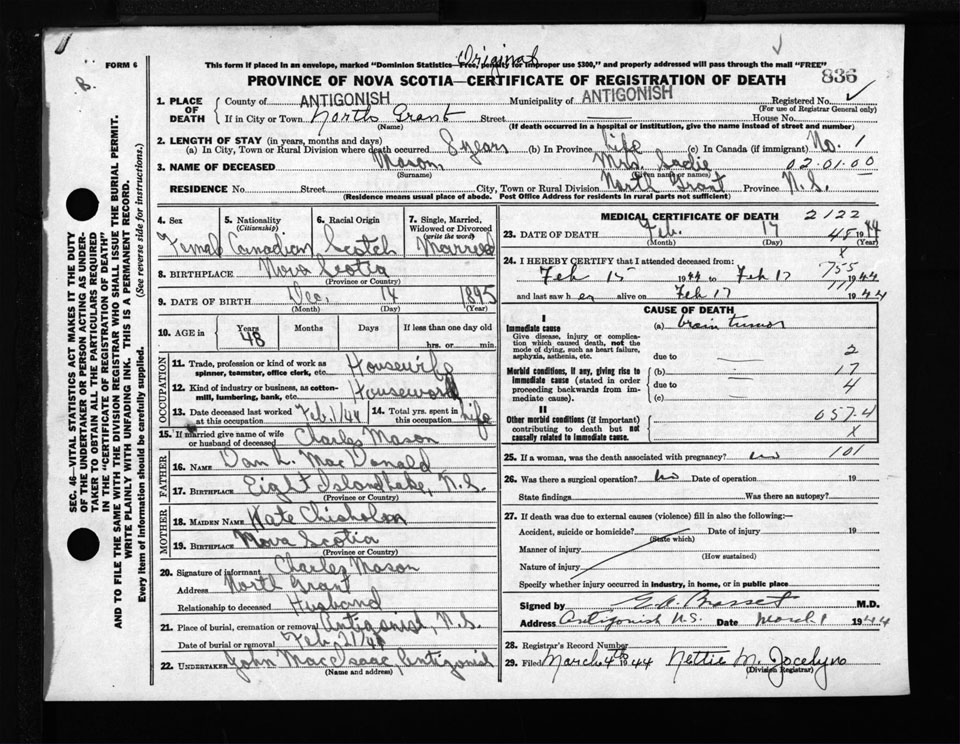 Original
FORM 6
B.
This form if placed in an envelope, marked "Dominion Statistics—Free, penalty for improper use $300," and properly addressed will pass through the mail "FREE"
PROVINCE OF NOVA SCOTIA—CERTIFICATE OF REGISTRATION OF DEATH
836
1. PLACE OF DEATH County of ANTIGONISH Municipality of ANTIGONISH Registered No.
(For use of Registrar General only)
If in City or Town North Grant Street House No.
(Name) (If death occurred in a hospital or institution, give the name instead of street and number)
2. LENGTH OF STAY (in years, months and days)
(a) In City, Town or Rural Division where death occurred 8 years (b) In Province Life (c) In Canada (if immigrant) No. 1
3. NAME OF DECEASED Mason Mrs. Sadie 02.01.00
(Surname) (Given name or names)
RESIDENCE No. Street City, Town or Rural Division North Grant Province N.S.
(Residence means usual place of abode. Post Office Address for residents in rural parts not sufficient)
4. Sex 5. Nationality (Citizenship) 6. Racial Origin 7. Single, Married, Widowed or Divorced (write the word)
Female Canadian Scotch Married
8. BIRTHPLACE Nova Scotia
(Province or Country)
9. DATE OF BIRTH Dec. 14 1895
(Month) (Day) (Year)
10. AGE in Years Months Days If less than one day old
48 hrs. or min.
OCCUPATION
11. Trade, profession or kind of work as spinner, teamster, office clerk, etc. Housewife
12. Kind of industry or business, as cotton-mill, lumbering, bank, etc. Housework
13. Date deceased last worked at this occupation Feb. 1/44 14. Total yrs. spent in this occupation Life
15. If married give name of wife or husband of deceased Charles Mason
FATHER
16. NAME Dan L. MacDonald
17. BIRTHPLACE Eight Island Lake, N.S.
(Province or Country)
MOTHER
18. MAIDEN NAME Kate Chisholm
19. BIRTHPLACE Nova Scotia
(Province or Country)
20. Signature of informant Charles Mason
Address North Grant
Relationship to deceased Husband
21. Place of burial, cremation or removal Antigonish, N.S.
Date of burial or removal Feb. 21/44
22. UNDERTAKER John MacIsaac, Antigonish
(Name and address)
MEDICAL CERTIFICATE OF DEATH 2122
23. DATE OF DEATH Feb. 17 1944
(Month) (Day) (Year)
48
X
24. I HEREBY CERTIFY that I attended deceased from:
Feb 15 1944 to Feb 17 1944
755
and last saw her alive on Feb 17 1944
111
CAUSE OF DEATH
I
Immediate cause (a) brain tumor
Give disease, injury or complication which caused death, not the mode of dying, such as heart failure, asphyxia, asthenia, etc.
due to 2
Morbid conditions, if any, giving rise to immediate cause (stated in order proceeding backwards from immediate cause).
(b) 17
due to 4
(c)
II
Other morbid conditions (if important) contributing to death but not causally related to immediate cause.
057.4
X
25. If a woman, was the death associated with pregnancy? no 101
26. Was there a surgical operation? no Date of operation 19
State findings Was there an autopsy?
27. If death was due to external causes (violence) fill in also the following:—
Accident, suicide or homicide? Date of injury 19
(State which)
Manner of injury
(How sustained)
Nature of injury
Specify whether injury occurred in industry, in home, or in public place
Signed by M.D.
Address Antigonish N.S. Date March 1 1944
28. Registrar's Record Number
29. Filed March 4th 1944 Nettie M. Jocelyn
(Division Registrar)
SEC. 46—VITAL STATISTICS ACT MAKES IT THE DUTY OF THE UNDERTAKER OR PERSON ACTING AS UNDERTAKER TO OBTAIN ALL THE PARTICULARS REQUIRED IN THE "CERTIFICATE OF REGISTRATION OF DEATH" AND TO FILE THE SAME WITH THE DIVISION REGISTRAR WHO SHALL ISSUE THE BURIAL PERMIT.
WRITE PLAINLY WITH UNFADING INK. THIS IS A PERMANENT RECORD.
Every item of Information should be carefully supplied. (See reverse side for instructions.)